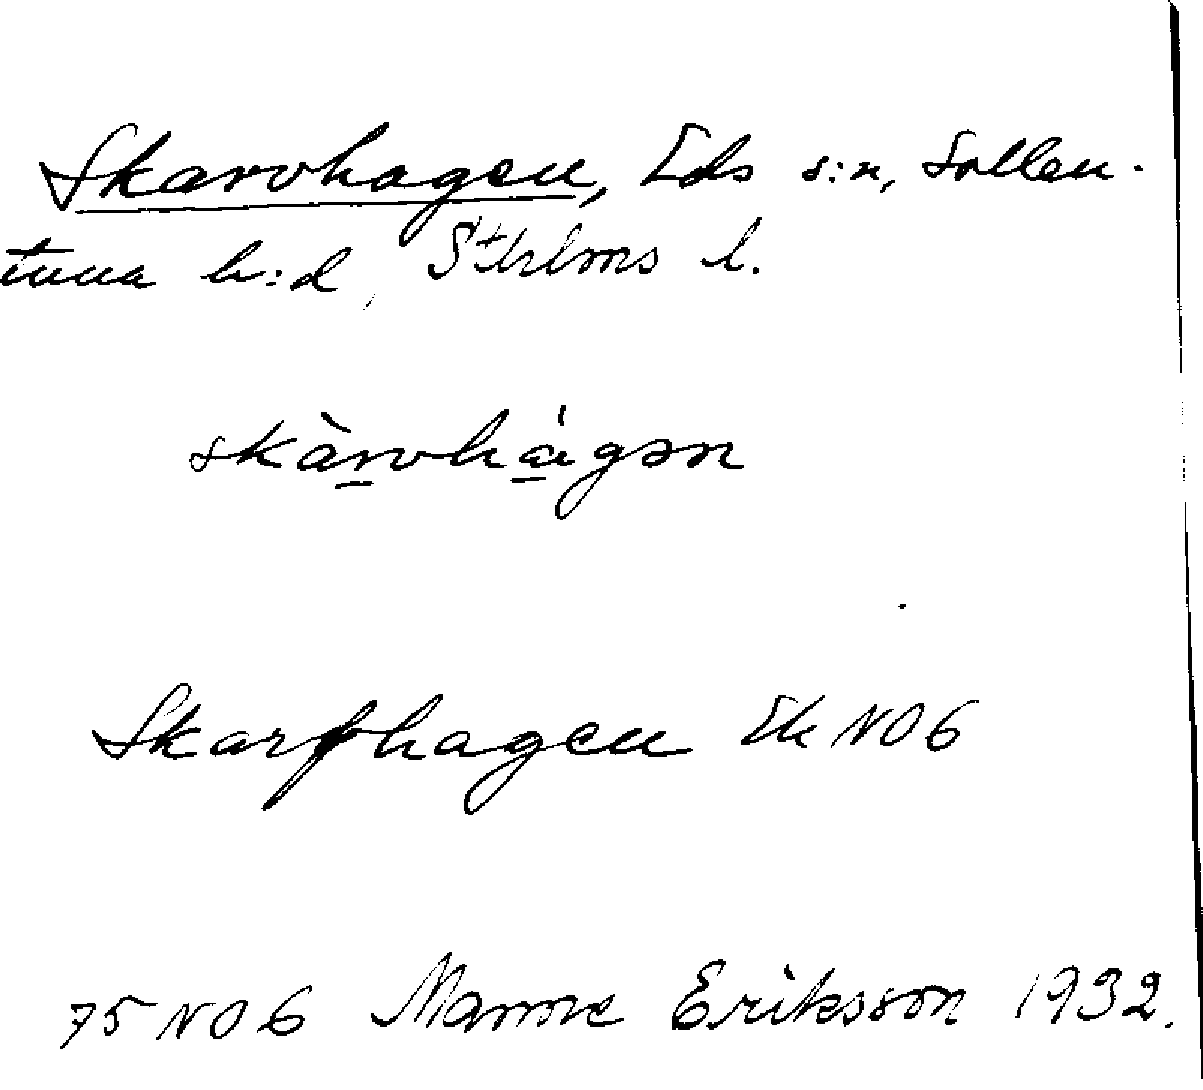 Skarvhagen, Eds s:n, Sollen-
tuna h:d, Sthlms l.
skàrvhágən
Skarfhagen Ek NO6
75 NO 6 Manne Eriksson 1932.